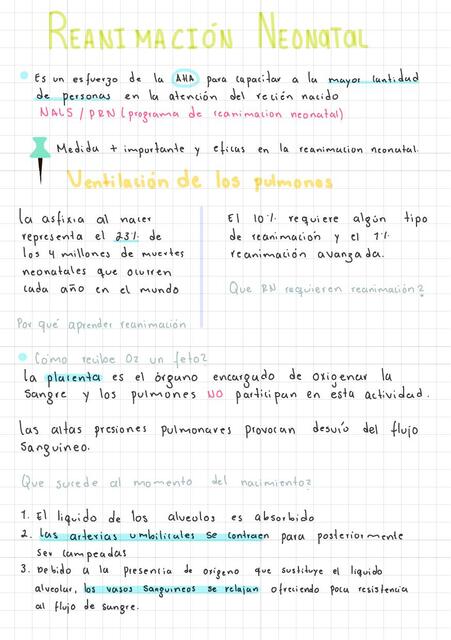 REANIMACIÓN NEONATAL
Es un esfuerzo de la AHA para capacitar a la mayor cantidad
de personas en la atención del recién nacido
NALS / PRN (programa de reanimacion neonatal)
Medida + importante y eficas en la reanimacion neonatal.
Ventilación de los pulmones
la asfixia al nacer
representa el 23% de
los 4 millones de muertes
neonatales que ocurren
cada año en el mundo
Por qué aprender reanimación
El 10% requiere algún tipo
de reanimación y el 1%
reanimación avanzada.
Que RN requieren reanimación?
Cómo recibe O2 un feto?
la placenta es el órgano encargado de oxigenar la
sangre y los pulmones NO participan en esta actividad.
las altas presiones pulmonares provocan desvío del flujo
sanguíneo.
Que sucede al momento del nacimiento?
1. El liquido de los alveolos es absorbido
2. las arterias umbilicales se contraen para posteriormente
ser campeadas
3. Debido a la presencia de oxigeno que sustituye el liquido
alveolar, los vasos sanguineos se relajan ofreciendo poca resistencia
al flujo de sangre.